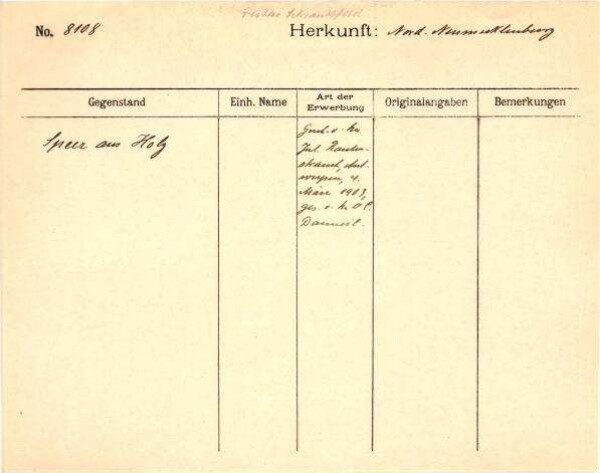 No. 8108
Herkunft: Nord-Neumecklenburg
Gegenstand
Einh. Name
Art der
Erwerbung
Originalangaben
Bemerkungen
Speer aus Holz
v. Hr.
Jul. Rauten-
strauch, Ant-
werpen, 4.
März 1913,
ges. v. Hr. O. C.